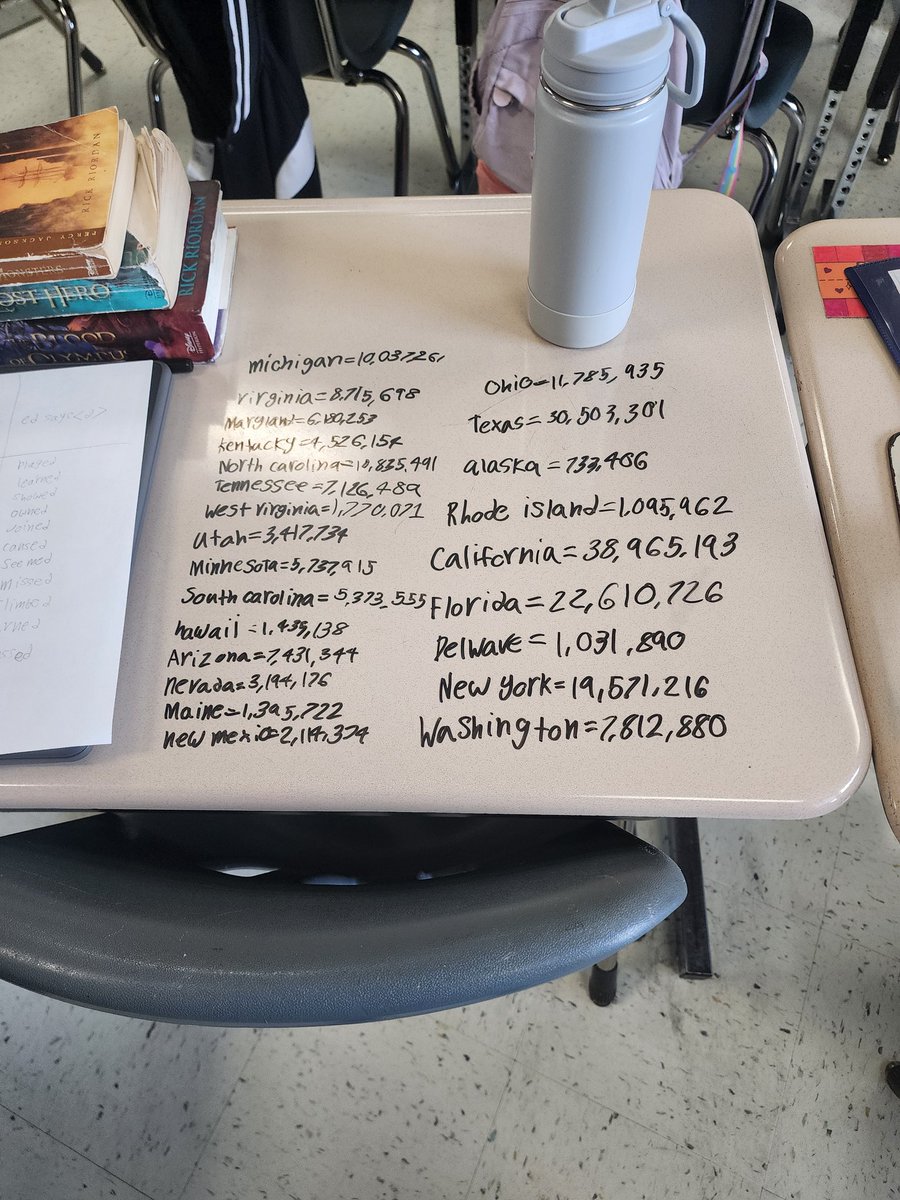 RICK RIORDAN
PERCY JACKSON
MONSTERS
LOST HERO
RICK RIORDAN
BLOOD
OF OLYMPUS
ed says
played
learned
showed
owned
Joined
caused
seemed
missed
michigan=10,03,726,
Virginia=8,715,698
Maryland=6,180,253
Kentacky=4,526,154
North carolina=10,835,491
Tennessee=7,126,489
West Virginia=1,770,071
Utah=3,417,734
Minnesota=5,737,915
South carolina=5,373,555
hawaii=1,435,138
Arizona=7,431,344
nevada=3,194,176
Maine=1,395,722
new mexio=2,114,374
Ohio=11,785,935
Texas=30,503,301
alaska=733,406
Rhode island=1,095,962
California=38,965,193
Florida=22,610,726
Delwave=1,031,890
New York=19,571,216
Washington=7,812,880